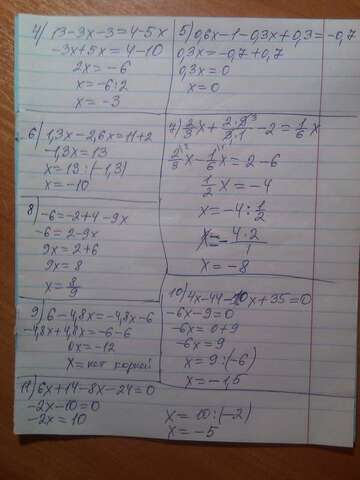 4) 13-3x-3=4-5x
-3x+5x=4-10
2x=-6
x=-6:2
x=-3
5) 0,6x-1-0,3x+0,3=-0,7
0,3x=-0,7+0,7
0,3x=0
x=0
6) 1,3x-2,6x=11+2
-1,3x=13
x=13:(-1,3)
x=-10
7) 2/3 x + 2·9³/3·1 - 2 = 1/6 x
2/3 x - 1/6 x = 2-6
1/2 x = -4
x=-4:1/2
x=-4·2/1
x=-8
8) -6=-2+4-9x
-6=2-9x
9x=2+6
9x=8
x=8/9
9) 6-4,8x=-4,8x-6
-4,8x+4,8x=-6-6
0x=-12
x=нет корней
10) 4x-44-10x+35=0
-6x-9=0
-6x=0+9
-6x=9
x=9:(-6)
x=-1,5
11) 6x+14-8x-24=0
-2x-10=0
-2x=10
x=10:(-2)
x=-5